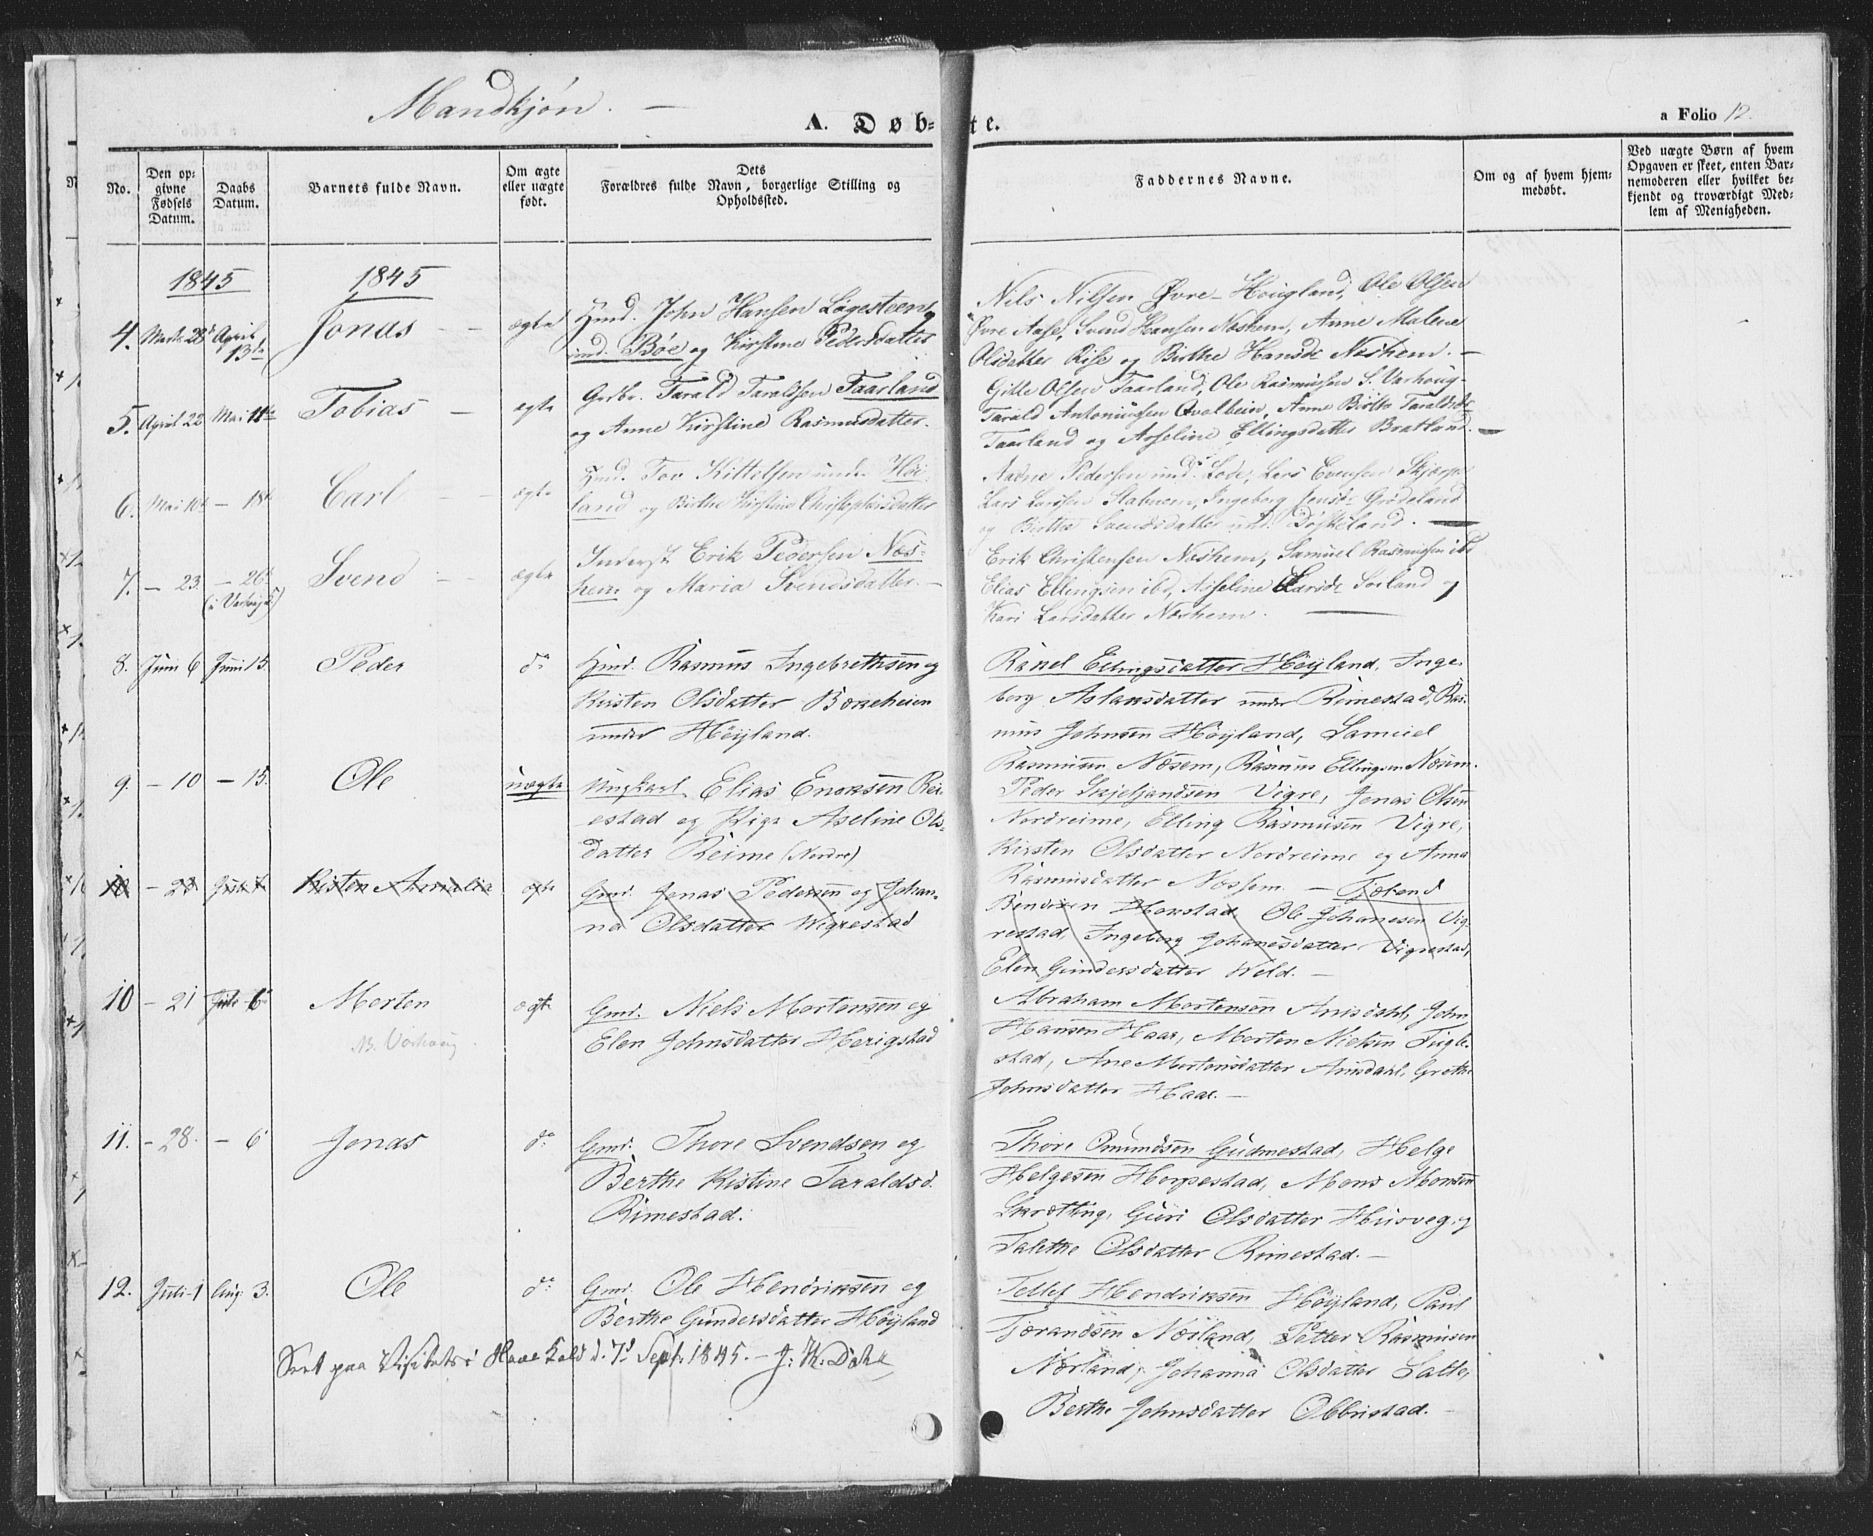 Mandkjøn. —
A. Døb-te.
a Folio 12.
No.
Den opgivne Fødsels Datum.
Daabs Datum.
Barnets fulde Navn.
Om ægte eller uægte født.
Dets Forældres fulde Navn, borgerlige Stilling og Opholdssted.
Faddernes Navne.
Om og af hvem hjemmedøbt.
Ved uægte Børn af hvem Opgaven er skeet, enten Barnemoderen eller hvilket bekjendt og troværdigt Medlem af Menigheden.
1845 1845
4. Marts 28 April 13de Jonas — ægte Huusmd. John Hansen Løgesteen
und. Bøe og Kirstine Pedersdatter
Nils Nilsen Øvre-Hougland, Ole Olsen
Øvre Aase, Svend Hansen Næshem, Anne Malene
Olsdatter Rise og Birthe Hansdr Neshem. —
5. April 22 Mai 11te Tobias — ægte Grbr. Tarald Taraldsen Taarland
og Anne Kirstine Rasmusdatter.
Gitle Olsen Taarland, Ole Rasmussen S. Varhoug
Tarald Antoniussen Qvalbein, Anne Birthe Taraldsdr
Taarland og Asseline Ellingsdatter Bratland. —
6. Mai 10de — 18de Carl — ægte Huusmd. Tov Kittelsen und. Høi-
land og Birthe Kirstine Christophersdatter
Aadne Pedersen und. Lode, Lars Evensen Skjærp-
Lars Larssen Stabnem, Ingeborg Jensdr Grødeland
og Birthe Svendsdatter und. Døskeland. —
7. — 23 — 26de (i Varhoug) Svend — ægte Inderst Erik Pedersen Næs-
hem og Maria Svendsdatter. —
Erik Christensen Neshem, Samuel Rasmussen ibd
Elias Ellingsen ibd, Asseline Larsdr Søiland og
Kari Larsdatter Næshem. —
8. Juni 6 Juni 15. Peder do Huusmd. Rasmus Ingebrethsen og
Kirsten Olsdatter Borkeheien
under Höÿland.
Ranel Ellingsdatter Höÿland, Inge-
berg Aslaksdatter under Rimestad, Ras-
mus Johnsen Höÿland, Samuel
Rasmusen Næsem, Rasmus Ellingsen Næsem.
9. — 10 — 15. Ole uægte Ungkarl Elias Enoksen Rei-
estad og Pige Aseline Ols-
datter Reime (Nordre)
Peder Skjeljandsen Vigre, Jonas Olsen
Nordreime, Elling Rasmusen Vigre,
Kirsten Olsdatter Nordreime og Anna
Rasmusdatter Næssem. —
10 — 23 Kirsten Amalia ægte Gmd. Jonas Pedersen og Johan-
na Olsdatter Wigrestad
Tjøland
Bendsen Haxstad, Ole Johanesen Vig-
restad, Ingeberg Johanesdatter Vigrestad,
Elen Gundersdatter Weld. —
10 — 21 Juli 6 Morten ægte Gmd. Niels Mortensen og
N. Varhoug
Elen Johnsdatter Herigstad
Abraham Mortensen Anisdahl, John
Hansen Haar, Morten Nielsen Fugle-
stad, Ane Mortensdatter Anisdahl, Grethe
Johnsdatter Haar. —
11. — 28. — 6 Jonas do Gmd. Thore Svendsen og
Berthe Kistine Taraldsd.
Rimestad.
Thore Omundsen Gudmestad, Helge
Helgesen Horpestad, Mons Monsen
Skrotting, Guri Olsdatter Husveg, og
Talethe Olsdatter Rimestad. —
12. Juli 1 Aug. 3. Ole do Gmd. Ole Hendriksen og
Berthe Gundersdatter Höÿland
Tellef Hendriksen Höÿland, Paul
Tjørandsen Nærland, Petter Rasmusen
Nærland, Johanna Olsdatter Salte,
Berthe Johnsdatter Obbristad. —
Seet paa Visitats i Haae Kald d. 7d Sept. 1845. —